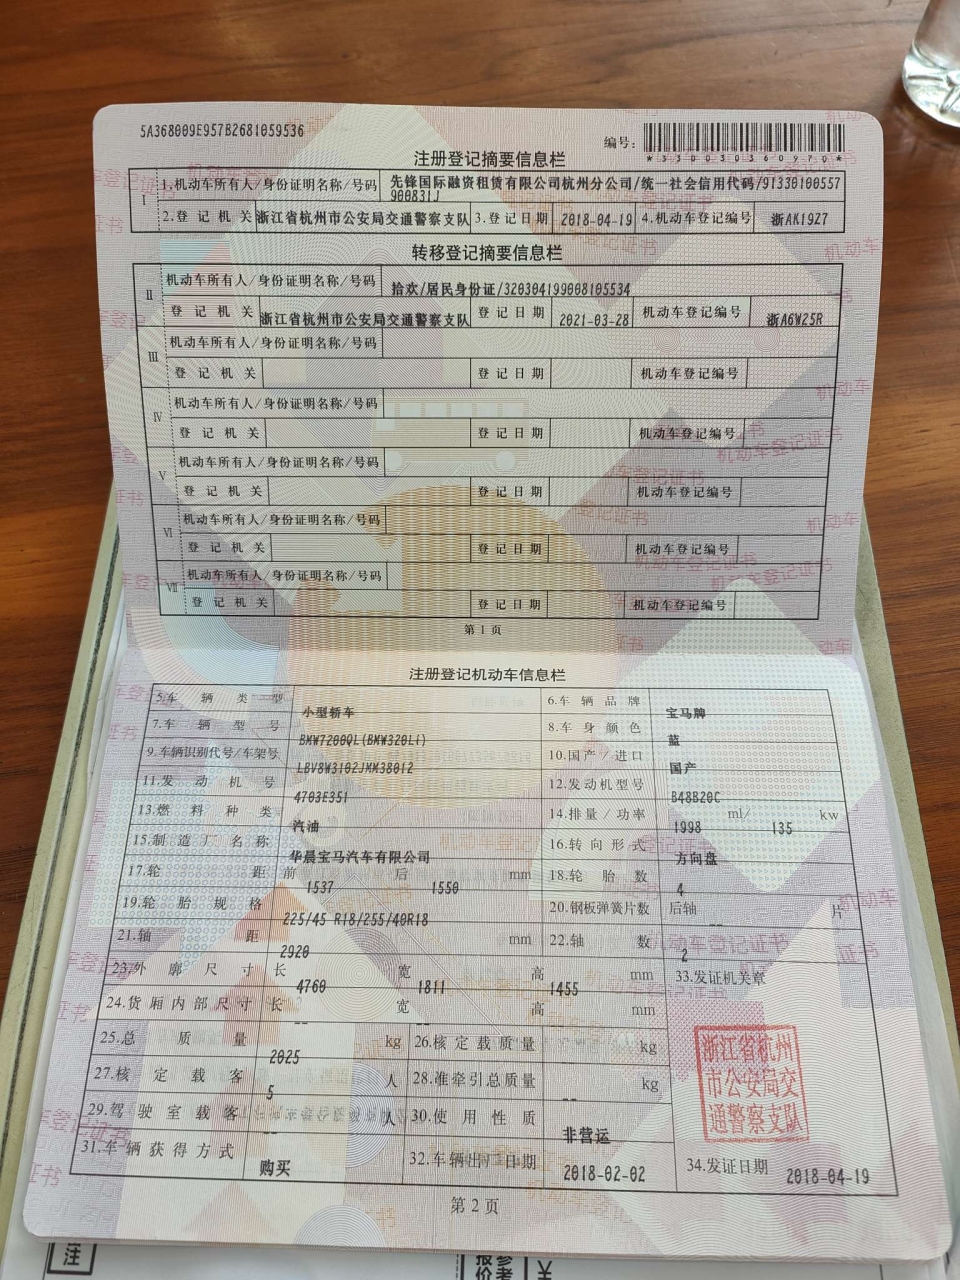 5A368009E957B2681059536
编号:
*330030360970*
注册登记摘要信息栏
Ⅰ 1.机动车所有人/身份证明名称/号码 先锋国际融资租赁有限公司杭州分公司/统一社会信用代码/91330100557900831J
2.登记机关 浙江省杭州市公安局交通警察支队 3.登记日期 2018-04-19 4.机动车登记编号 浙AK19Z7
转移登记摘要信息栏
Ⅱ 机动车所有人/身份证明名称/号码 拾欢/居民身份证/320304199008105534
登记机关 浙江省杭州市公安局交通警察支队 登记日期 2021-03-28 机动车登记编号 浙A6W25R
Ⅲ 机动车所有人/身份证明名称/号码
登记机关 登记日期 机动车登记编号
Ⅳ 机动车所有人/身份证明名称/号码
登记机关 登记日期 机动车登记编号
Ⅴ 机动车所有人/身份证明名称/号码
登记机关 登记日期 机动车登记编号
Ⅵ 机动车所有人/身份证明名称/号码
登记机关 登记日期 机动车登记编号
Ⅶ 机动车所有人/身份证明名称/号码
登记机关 登记日期 机动车登记编号
第1页
注册登记机动车信息栏
5.车辆类型 小型轿车 6.车辆品牌 宝马牌
7.车辆型号 BMW7200QL(BMW320Li) 8.车身颜色 蓝
9.车辆识别代号/车架号 LBV8W3102JMM38012 10.国产/进口 国产
11.发动机号 4703E351 12.发动机型号 B48B20C
13.燃料种类 汽油 14.排量/功率 1998 ml/ 135 kw
15.制造厂名称 华晨宝马汽车有限公司 16.转向形式 方向盘
17.轮距 前 1537 后 1550 mm 18.轮胎数 4
19.轮胎规格 225/45 R18/255/40R18 20.钢板弹簧片数 后轴 -- 片
21.轴距 2920 mm 22.轴数 2
23.外廓尺寸 长 4760 宽 1811 高 1455 mm 33.发证机关章
24.货厢内部尺寸 长 -- 宽 -- 高 -- mm
25.总质量 2025 kg 26.核定载质量 -- kg
27.核定载客 5 人 28.准牵引总质量 -- kg
29.驾驶室载客 -- 人 30.使用性质 非营运
31.车辆获得方式 购买 32.车辆出厂日期 2018-02-02 34.发证日期 2018-04-19
浙江省杭州
市公安局交
通警察支队
第2页
注
报价
参考
￥